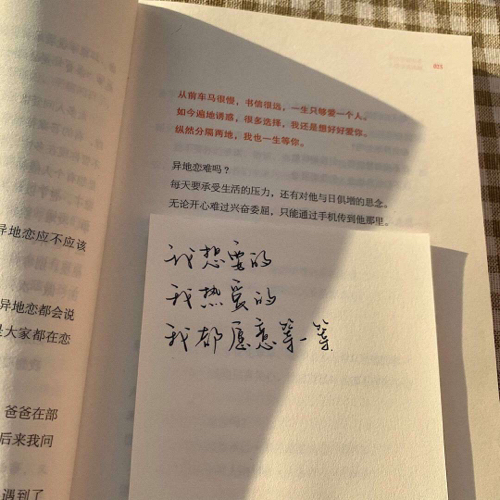 从前车马很慢，书信很远，一生只够爱一个人。
如今遍地诱惑，很多选择，我还是想好好爱你。
纵然分隔两地，我也一生等你。
异地恋难吗？
每天要承受生活的压力，还有对他与日俱增的思念。
无论开心难过兴奋委屈，只能通过手机传到他那里。
我想要的
我热爱的
我都愿意等一等
异地恋应不应该
异地恋都会说
是大家都在恋
爸爸在部
后来我问
遇到了